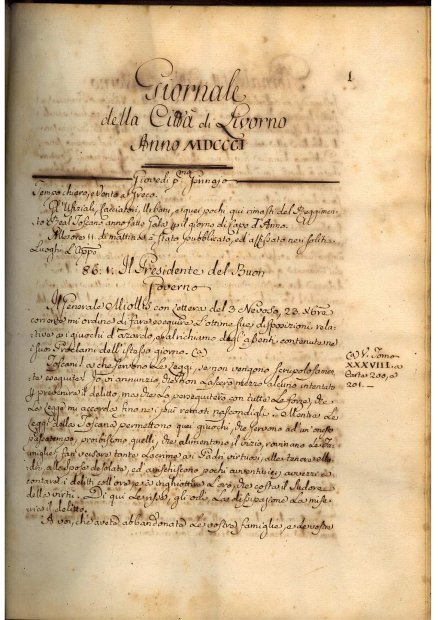 1
Giornale
della Città di Livorno
Anno MDCCCI
Giovedì pmo Gennajo
Tempo chiaro, e Vento a Greco.
Gl'Ufiziali, Cacciatori, Urbani, e quei pochi qui rimasti del Reggimen-
to Real Toscano anno fatto Gala p il giorno di Capo d'Anno.
All'ore 11 di mattina è stato pubblicato, ed affissato nei soliti
Luoghi L'appo
86. 1. Il Presidente del Buon
Governo
Il Generale Miollis con Lettera del 3 Nevoso, 23 Xbre
corrente mi ordina di fare eseguire l'ottime sue disposizioni rela-
tive ai giuochi d'azzardo, ed al richiamo degl'assenti contenute ne
i suoi Proclami dell'istesso giorno. (a)
(a) V. Tomo
XXXVIII. a
Carte 200, e
201.
Toscani a che servono le Leggi, se non vengono scrupolosamen-
te eseguite? Io vi annunzio, che non lascerò mezzo alcuno intentato
p prevenire il delitto, ma che lo perseguiterò con tutte le forze, che
le Leggi mi accordano fino nei più remoti nascondigli. Mentre le
Leggi della Toscana permettono quei giuochi, che servono ad un onesto
passatempo, proibiscono quelli, che alimentono il vizio, rovinano le Fa-
miglie, fan versare tante Lacrime ai Padri virtuosi, alle tenere
alle spose desolate, ed arricchiscono pochi avventurieri avvezzi a
contare i delitti coll'ore, e a inghiottire l'oro, che costa il sudore
della virtù. Di qui le risse, gli odj, la dissipazione la mise-
ria il delitto.
A voi, che avete abbandonate le vostre famiglie, e le vostre